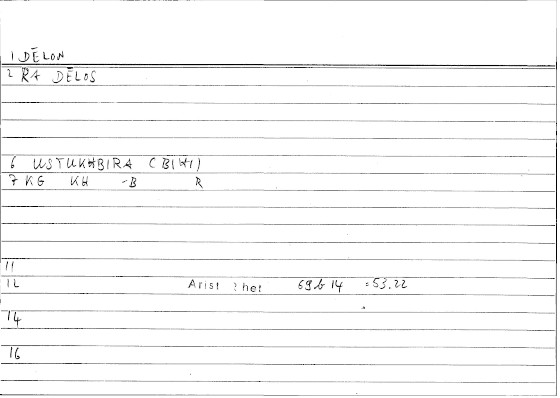 1 DĒLON
2 RA DĒLOS
6 USTUKHBIRA (BIHI)
7 KG KH -B R
11
12 Arist Rhet 69b14 =53.22
14
16